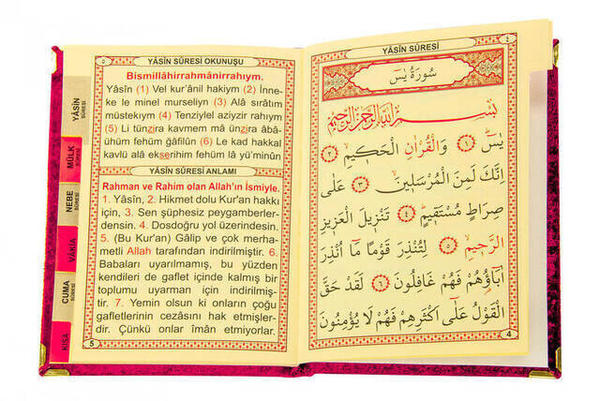 ٤
YÂSİN SÛRESİ
سُورَةُ يٰسٓ
بِسْــــمِ اللّٰهِ الرَّحْمٰنِ الرَّحِيمِ
يٰسٓ ﴿١﴾ وَالْقُرْاٰنِ الْحَكٖيمِ ﴿٢﴾
اِنَّكَ لَمِنَ الْمُرْسَلٖينَ ﴿٣﴾ عَلٰى
صِرَاطٍ مُسْتَقٖيمٍ ﴿٤﴾ تَنْزٖيلَ الْعَزٖيزِ
الرَّحٖيمِ ﴿٥﴾ لِتُنْذِرَ قَوْمًا مَٓا اُنْذِرَ
اٰبَٓاؤُهُمْ فَهُمْ غَافِلُونَ ﴿٦﴾ لَقَدْ حَقَّ
الْقَوْلُ عَلٰٓى اَكْثَرِهِمْ فَهُمْ لَا يُؤْمِنُونَ
4
٥
YÂSİN SÛRESİ OKUNUŞU
Bismillâhirrahmânirrahıym.
Yâsîn (1) Vel kur'ânil hakiym (2) İnne-
ke le minel murseliyn (3) Alâ sırâtım
müstekıym (4) Tenziylel aziyzir rahıym
(5) Li tünzira kavmem mâ ünzira âbâ-
ühüm fehüm ğâfilûn (6) Le kad hakkal
kavlü alâ ekserihim fehüm lâ yü'minûn
YÂSİN SÛRESİ ANLAMI
Rahman ve Rahim olan Allah'ın ismiyle.
1. Yâsîn, 2. Hikmet dolu Kur'an hakkı
için, 3. Sen şüphesiz peygamberler-
densin. 4. Dosdoğru yol üzerindesin.
5. (Bu Kur'an) Gâlip ve çok merha-
metli Allah tarafından indirilmiştir. 6.
Babaları uyarılmamış, bu yüzden
kendileri de gaflet içinde kalmış bir
toplumu uyarman için indirilmiş-
tir. 7. Yemin olsun ki onların çoğu
gafletlerinin cezasını hak etmişler-
dir. Çünkü onlar îmân etmiyorlar.
5
YÂSİN
SÛRESİ
MÜLK
SÛRESİ
NEBE
SÛRESİ
VÂKIA
CUMA
SÛRESİ
KISA